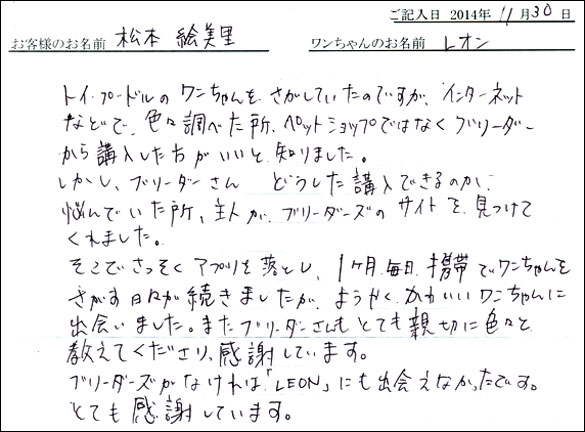 ご記入日 2014年 11月30日
お客様のお名前 松本 絵美里 ワンちゃんのお名前 レオン
トイ・プードルの ワンちゃんを さがしていたのですが、インターネット
などで、色々調べた所、ペットショップではなくブリーダー
から講入した方がいいと知りました。
しかし、ブリーダーさん どうした講入できるのか、
悩んでいた所、主人が、ブリーダーズの サイトを見つけて
くれました。
そこでさっそく アプリを落とし、1ヶ月、毎日、携帯でワンちゃんを
さがす日々が続きましたが、ようやく、かわいいワンちゃんに
出会いました。またブリーダーさんもとても親切に色々と
教えてくださり、感謝しています。
ブリーダーズがなければ「LEON」にも出会えなかったです。
とても感謝しています。